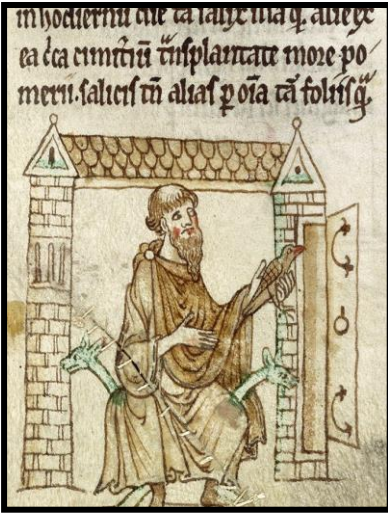 in hodiernū diē tā salix illa q̄ alie ex
ea c̄ca cimit̄iū tͣnsplantate more po
merii. salicis tn̄ alias ꝑ oīa tā foliis qͣ